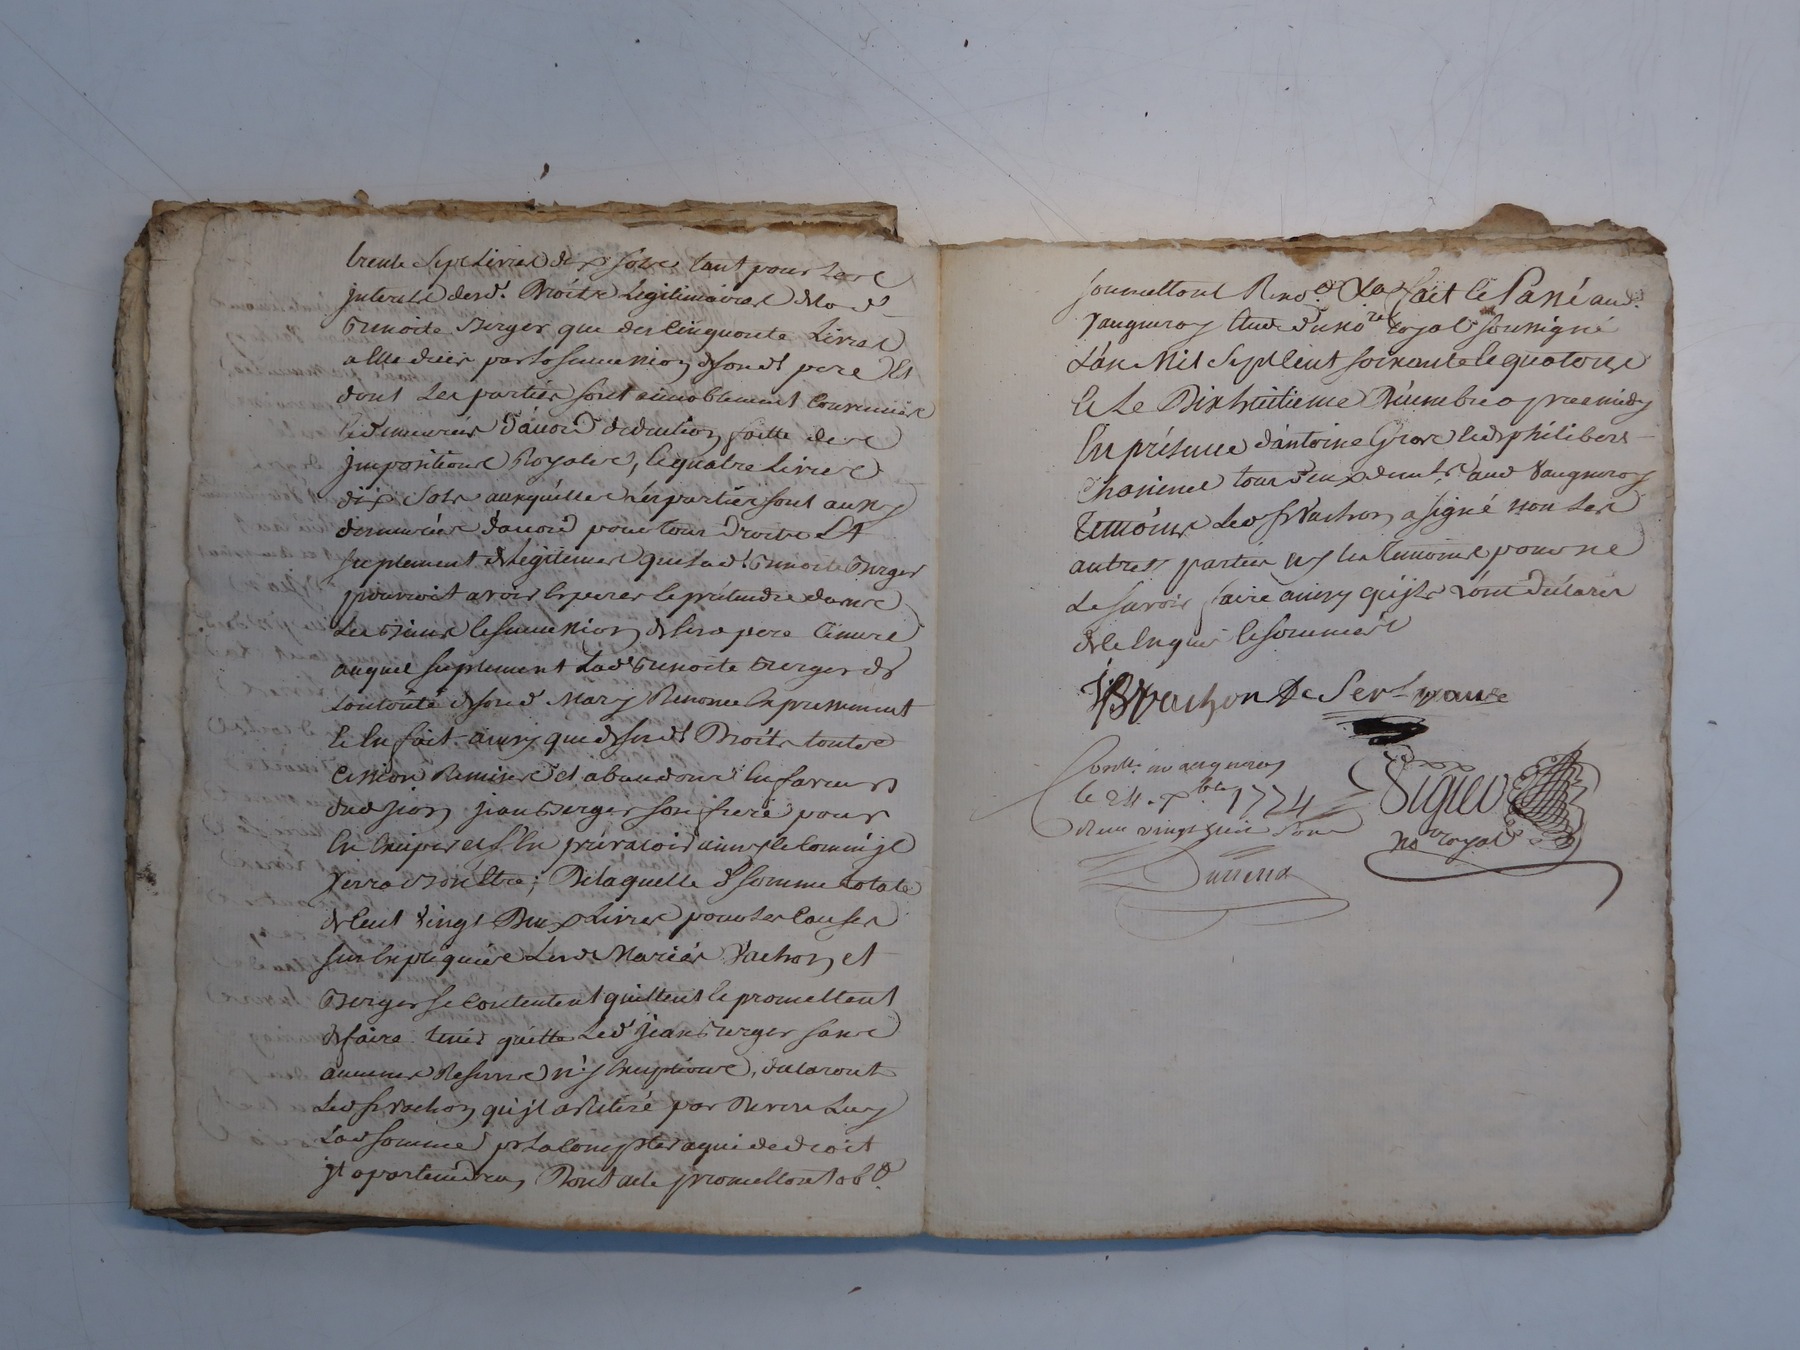 trente Sept Livres dix sols tant pour Les
jnterets desd. Droits Legitimaires de lad
Benoite Berger que des Cinquante Livres
a Elle dues par la succession de sond pere Et
dont Les parties sont aimablement Convenues
demeurés d'acord deduction faitte des
jmpositions Royales, Et quatre Livres
dix Sols auxquelles les parties sont aussy
demeurées d'acord pour tous Droits Et
suplement de Legitimes que lad. Benoite Berger
pourroit avoir Esperer Et prétendre dans
Les Biens Et succession de sesd pere Et mere
auquel suplement Lad Benoite Berger de
L'autorité de sond Mary Renonce Expressement
Et En fait ainsy que de sesd Droits toutes
Cession Remises et abandons En faveur
dud sieur jean Berger son frere pour
En Exiger et s'En prévaloir ainsy Et Comm'jl
verra Bon Etre; De laquelle d somme totale
de Cent vingt Deux Livres pour Les Causes
sus Expliquées Lesd Mariés Vachon et
Berger se Contentent quittent Et promettent
de faire tenir quitte Led jean Berger sans
aucunes Reserves n'y Exceptions, déclarant
Led sr Vachon qu'jl a Retiré par Devers Luy
Lad somme pr La Compter a qui de droit
jl apartiendra, Dont acte promettant obt.
soumettant Renot. &a fait Et Passé aud.
Vaugneray Etude du nore Royal soussigné
L'an Mil Sept Cent soixante Et quatorze
Et Le Dix huitieme Décembre apres midy
En présence d'antoine Gros Et de philibert
Chasienet tous deux demts. aud Vaugneray
temoins Led sr Vachon a signé non Les
autres parties ny Les temoins pour ne
Le savoir faire ainsy qu'jls l'ont déclaré
de Ce Enquis Et sommés
Vachon
Contlé. a vaugneray
le 24. Xbre 1774
Reçu vingt six sols
nore royal